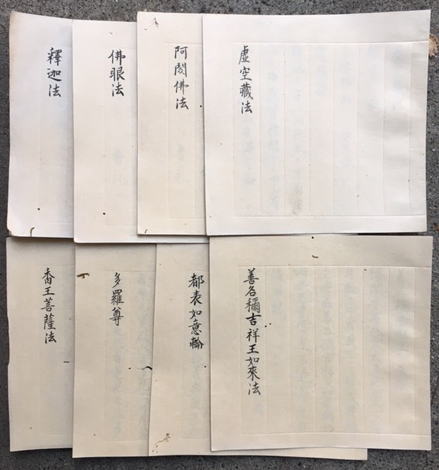 虛空藏法
阿閦佛法
佛眼法
釋迦法
善名穪吉祥王如來法
都表如意輪
多羅尊
香王菩薩法